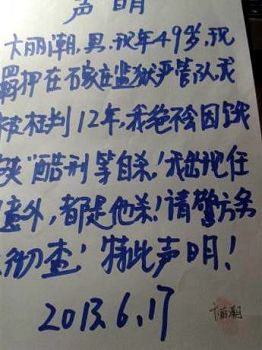 声明
卞丽潮,男,现年49岁,现
羁押在石家庄监狱严管队,我
被枉判12年,我绝不会因饿
饭"酷刑等自杀!我出现任
意外,都是他杀!请警方务
彻查!特此声明!
2013.6.17
卞丽潮